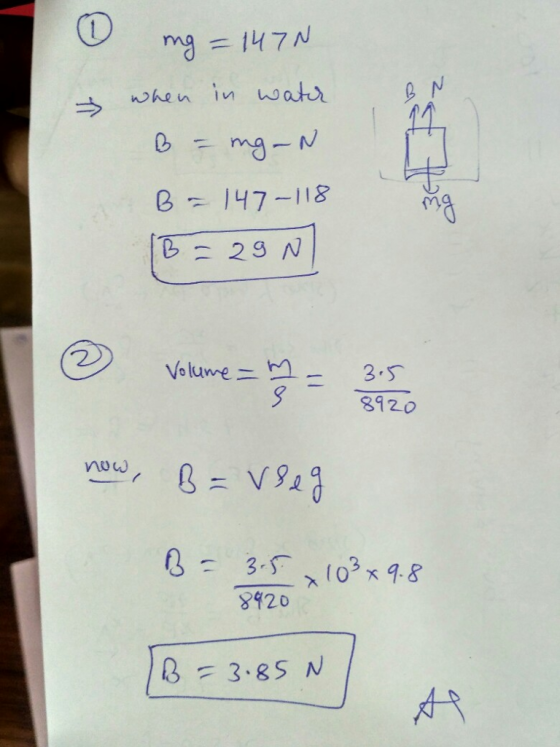 ① mg = 147 N
⇒ when in water
B N
B = mg - N
B = 147 - 118
mg
B = 29 N
② Volume = m/ρ = 3.5/8920
now, B = Vρℓg
B = 3.5/8920 × 10³ × 9.8
B = 3.85 N